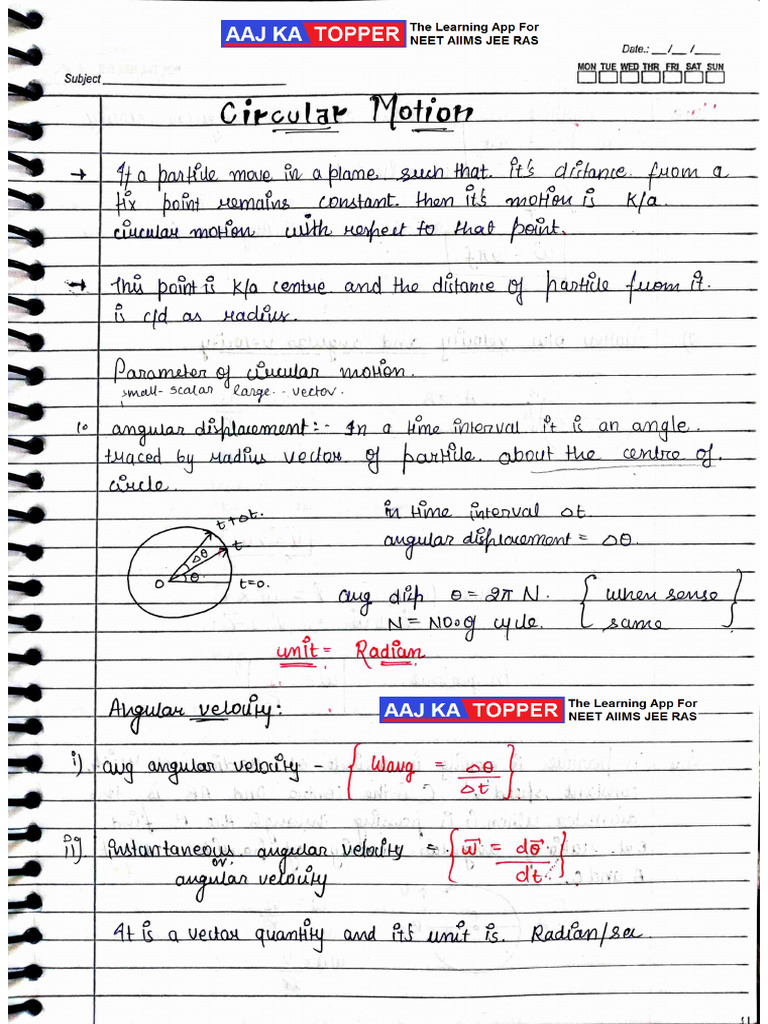 AAJ KA TOPPER The Learning App For
NEET AIIMS JEE RAS
Date.: __/__/____
MON TUE WED THR FRI SAT SUN
Subject
Circular Motion
→ If a particle move in a plane such that it's distance from a
fix point remains constant then it's motion is k/a
circular motion with respect to that point.
→ This point is k/a centre and the distance of particle from it
is c/d as radius.
Parameter of circular motion.
small-scalar large-vector.
1. angular displacement:- In a time interval it is an angle
traced by radius vector of particle about the centre of
circle.
t+Δt.
t
Δθ
θ
O
t=0.
in time interval Δt.
angular displacement = Δθ.
ang disp θ = 2π N. { when sense
N = NO. of cycle. same }
unit = Radian
Angular velocity:
AAJ KA TOPPER The Learning App For
NEET AIIMS JEE RAS
i) avg angular velocity - { Wavg = Δθ/Δt }
ii) instantaneous angular velocity = { w⃗ = dθ⃗/dt }
or
angular velocity
It is a vector quantity and it's unit is. Radian/sec